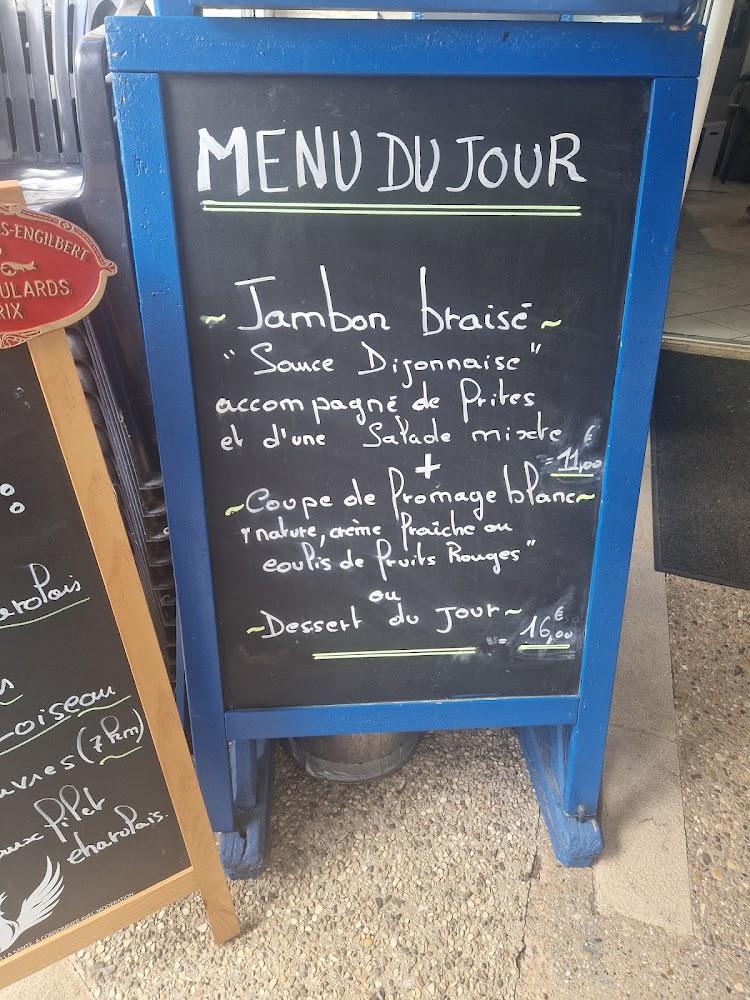 MENU DU JOUR
~ Jambon braisé ~
" Sauce Dijonnaise "
accompagné de frites
et d'une Salade mixte
= 11,00 €
+
~ Coupe de fromage blanc ~
" nature, crème fraîche ou
coulis de fruits Rouges "
ou
~ Dessert du jour ~
= 16,00 €
S-ENGILBERT
ULARDS
RIX
arolais
Loiseau
uvres (7km)
aux filet
charolais.
LA SANTÉ. À CONSOMMER AVEC MODÉRATION